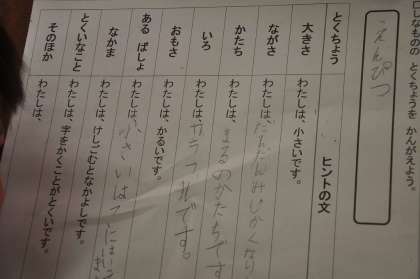 口しなものの とくちょうを かんがえよう。
えんぴつ
とくちょう ヒントの文
大きさ わたしは、小さいです。
ながさ わたしは、だんだんみじかくなり
かたち わたしは、まるのかたちです
いろ わたしは、カラフルです。
おもさ わたしは、かるいです。
ある ばしょ わたしは、小さいはこにはいっ
なかま わたしは、けしごむとなかよしです。
とくいなこと わたしは、字をかくことがとくいです。
そのほか わたしは、